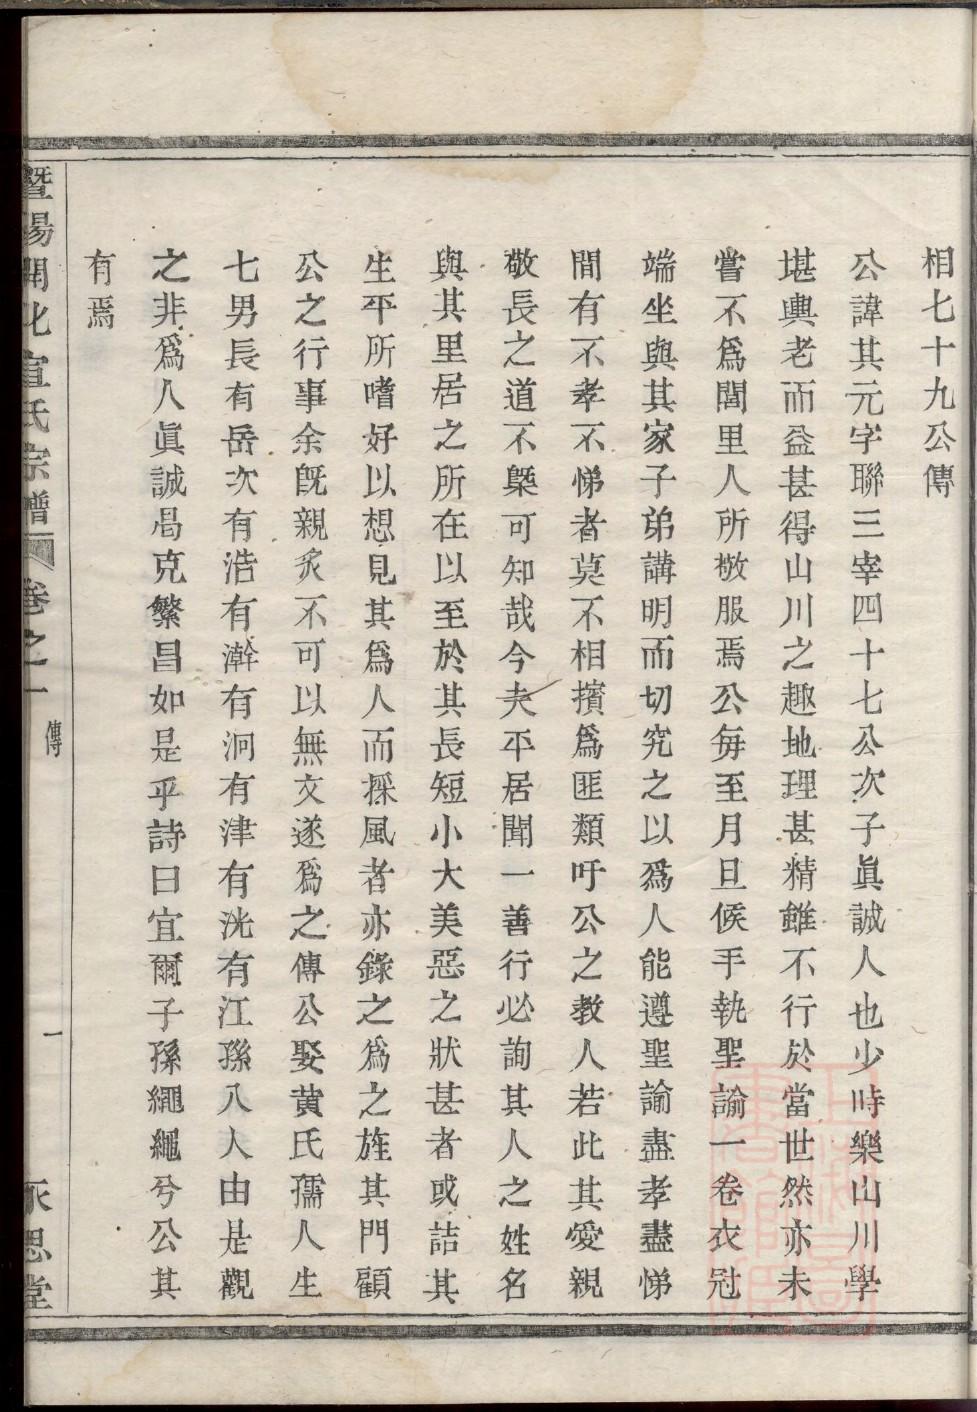 相七十九公傳
公諱其元字聯三宰四十七公次子眞誠人也少時樂山川學
堪輿老而益甚得山川之趣地理甚精雖不行於當世然亦未
嘗不爲閭里人所敬服焉公每至月旦候手執聖諭一卷衣冠
端坐與其家子弟講明而切究之以爲人能遵聖諭盡孝盡悌
間有不孝不悌者莫不相擯爲匪類吁公之教人若此其愛親
敬長之道不槩可知哉今夫平居聞一善行必詢其人之姓名
與其里居之所在以至於其長短小大美惡之狀甚者或詰其
生平所嗜好以想見其爲人而採風者亦錄之爲之旌其門顧
公之行事余旣親炙不可以無文遂爲之傳公娶黃氏孺人生
七男長有岳次有浩有澣有泂有津有洸有江孫八人由是觀
之非爲人眞誠曷克繁昌如是乎詩曰宜爾子孫繩繩兮公其
有焉
暨陽開化宣氏宗譜 卷之一 傳 一 永思堂